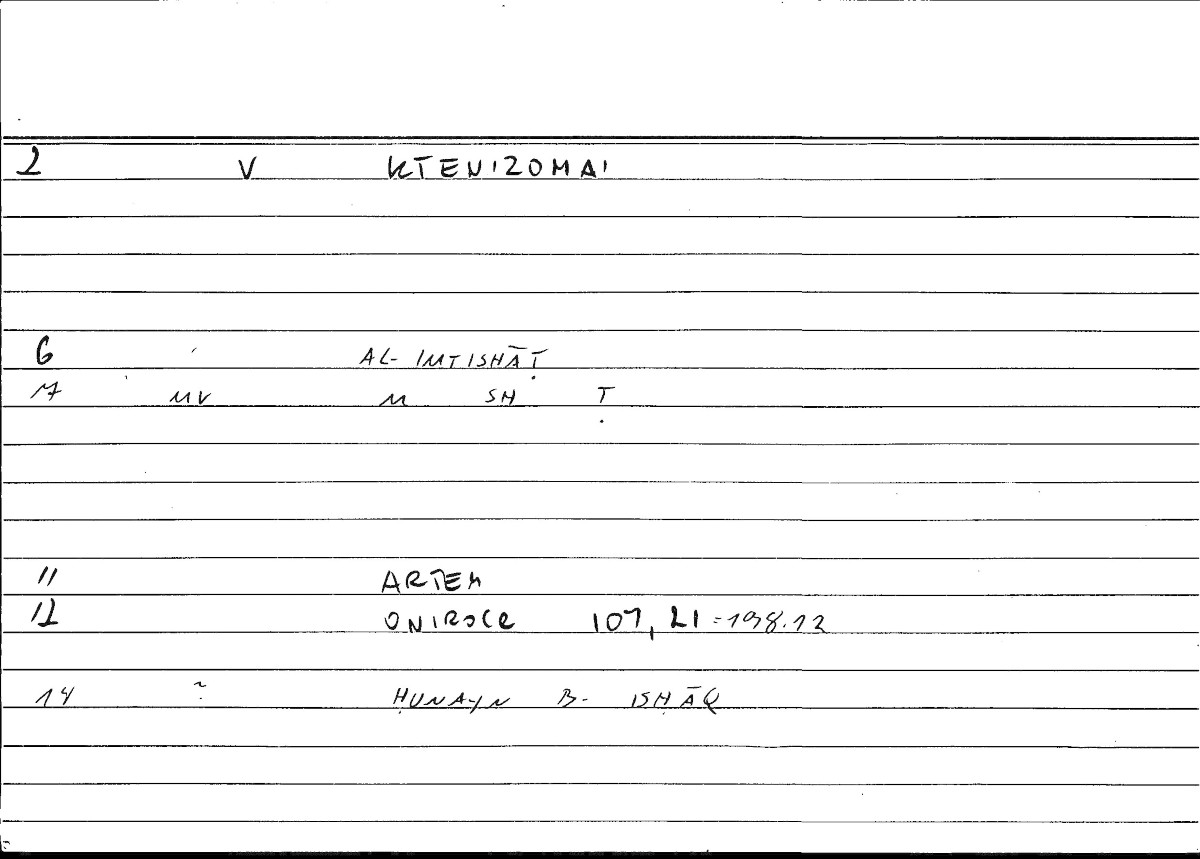 2 V KTENIZOMAI
6 AL- IMTISHĀṬ
7 MV M SH Ṭ
11 ARTEM
12 ONIROCR 107, 21 = 198.12
14 ḤUNAYN B- ISḤĀQ